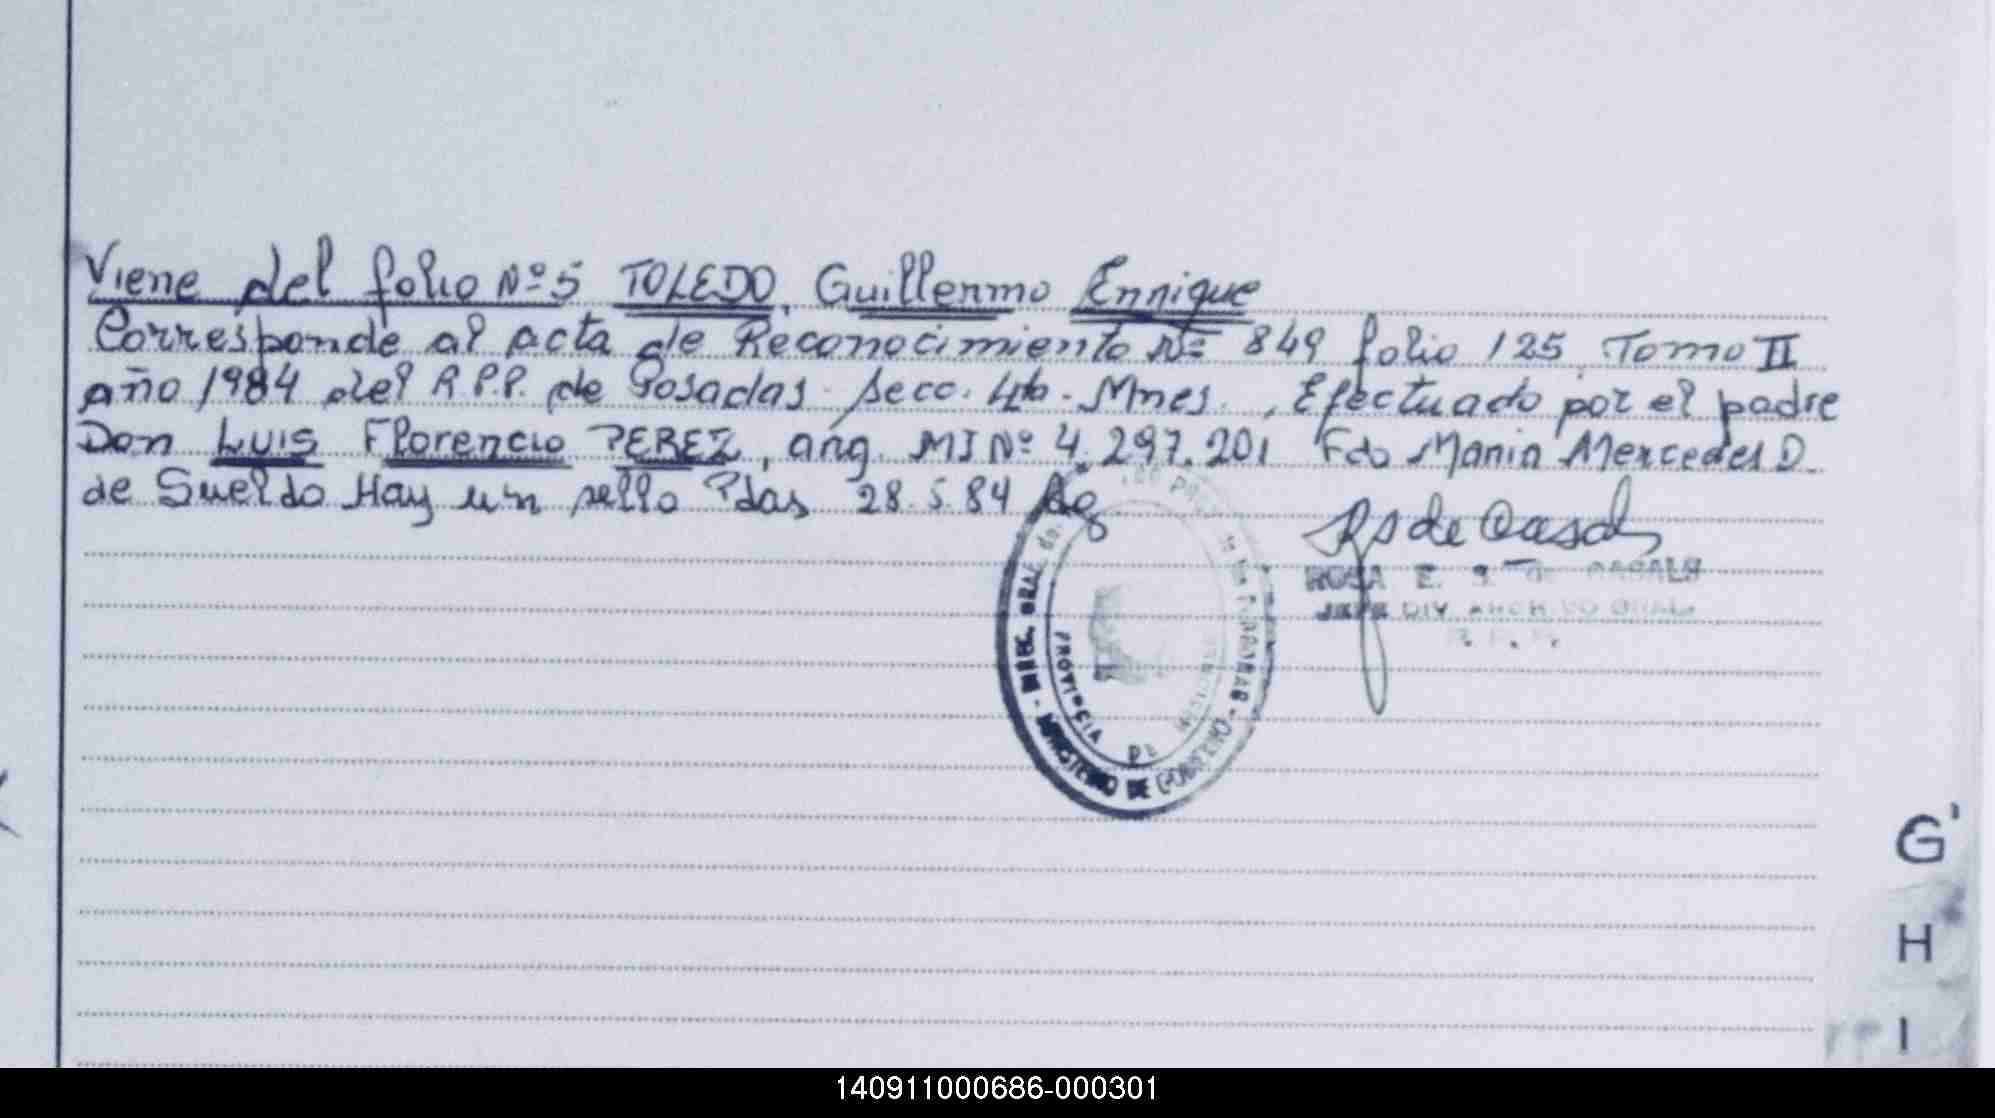 Viene del folio Nº 5 TOLEDO, Guillermo Enrique
Corresponde al acta de Reconocimiento Nº 849 folio 125 Tomo II
año 1984 del R.P.P. de Posadas Secc. 4ta. Mnes. , Efectuado por el padre
Don LUIS Florencio PEREZ, arg. MI Nº 4.297.201 Fdo Maria Mercedes D.
de Sueldo Hay un sello Pdas 28.5.84
ROSA E. S. de CASALS
JEFE DIV. ARCHIVO GRAL.
R. P. P.
DIREC. GRAL. del REG. PROV. de las PERSONAS
MINISTERIO DE GOBIERNO
PROVINCIA DE MISIONES
G
H
I
140911000686-000301